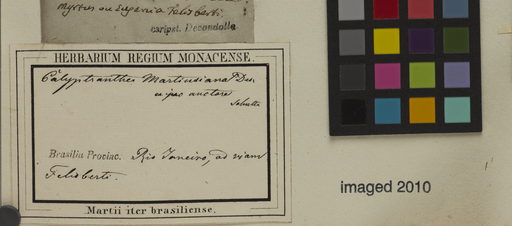 Myrtus an Eugenia Felisberti,
caripst. Decandolle
HERBARIUM REGIUM MONACENSE.
Calyptranthes Martiusiana
ipso auctore
Schultes
Brasilia Provinc. Rio Janeiro, ad viam
Felisberti.
Martii iter brasiliense.
imaged 2010